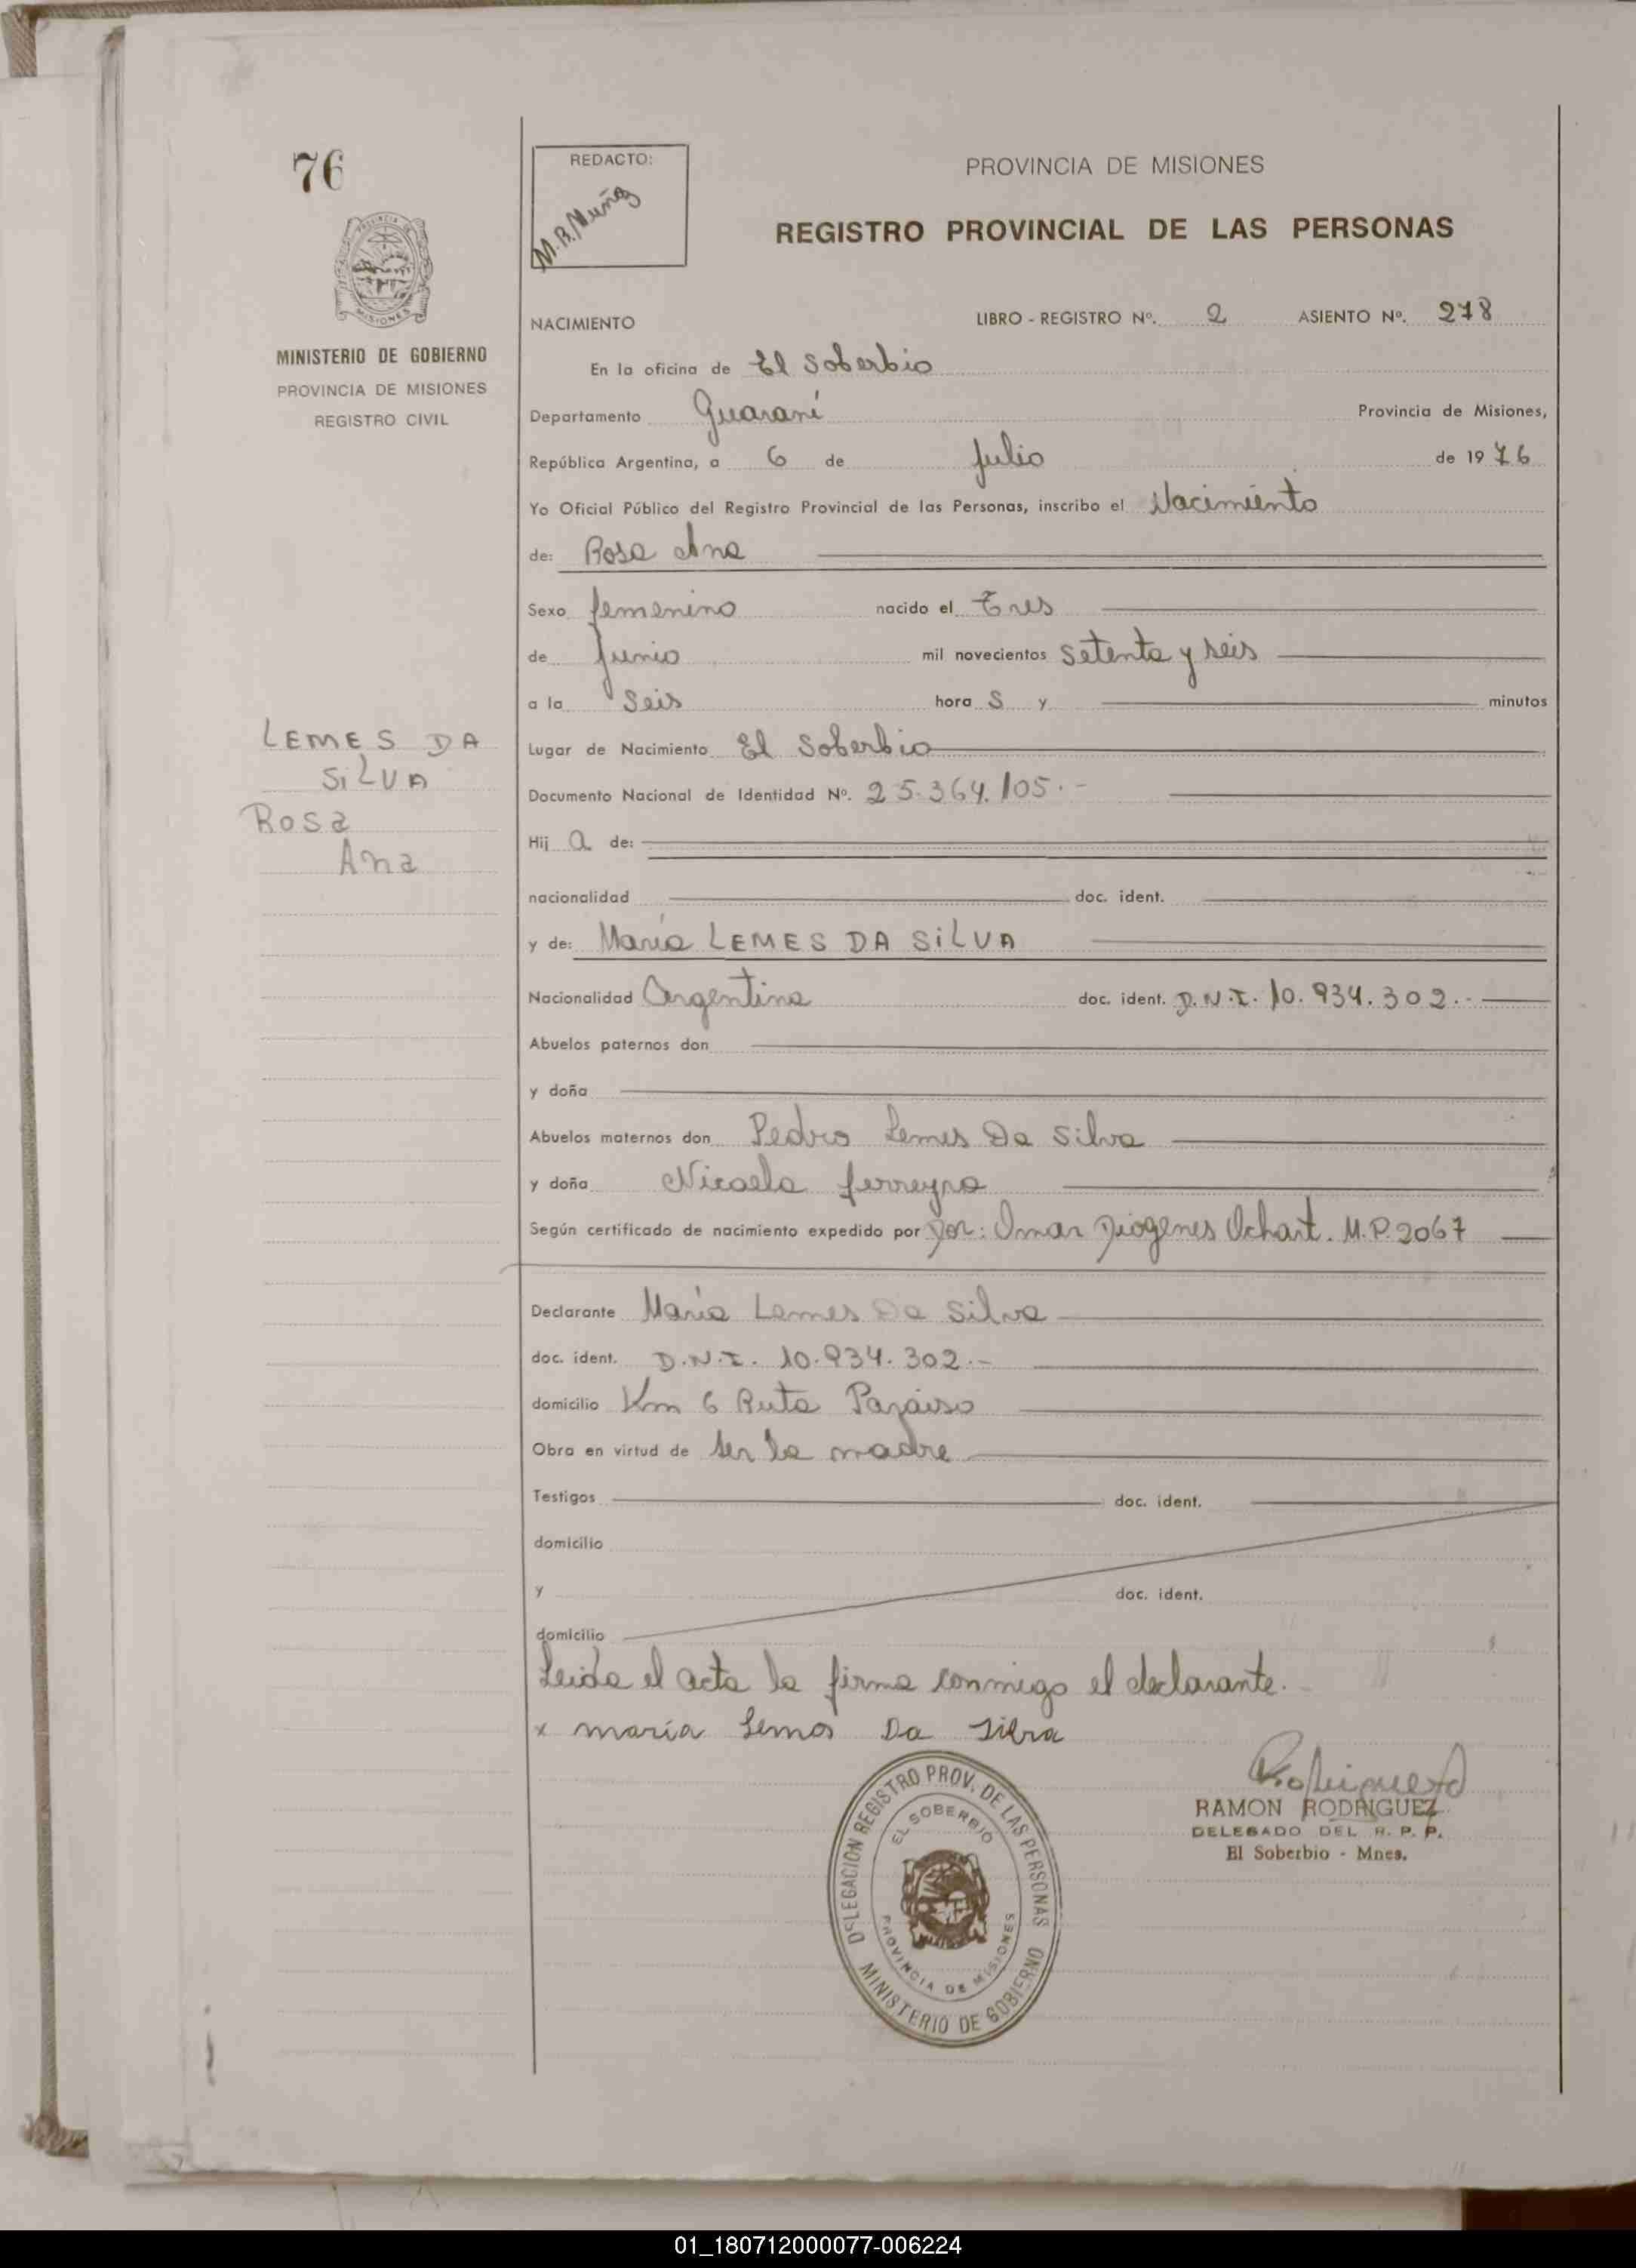 76
REDACTO:
M.B. Muñoz
PROVINCIA DE MISIONES
REGISTRO PROVINCIAL DE LAS PERSONAS
PROVINCIA DE MISIONES
MINISTERIO DE GOBIERNO
PROVINCIA DE MISIONES
REGISTRO CIVIL
NACIMIENTO LIBRO - REGISTRO Nº. 2 ASIENTO Nº. 278
En la oficina de El Soberbio
Departamento Guaraní Provincia de Misiones,
República Argentina, a 6 de Julio de 1976
Yo Oficial Público del Registro Provincial de las Personas, inscribo el Nacimiento
de: Rosa Ana
Sexo femenino nacido el Tres
de Junio mil novecientos setenta y seis
a la Seis hora s y minutos
LEMES DA
SILVA
Rosa
Ana
Lugar de Nacimiento El Soberbio
Documento Nacional de Identidad Nº. 25.364.105.-
Hij a de:
nacionalidad doc. ident.
y de: María LEMES DA SILVA
Nacionalidad Argentina doc. ident. D.N.I. 10.934.302.-
Abuelos paternos don
y doña
Abuelos maternos don Pedro Lemes Da Silva
y doña Nicaela ferreyra
Según certificado de nacimiento expedido por Dor: Omar Diógenes Ochart. M.P. 2067
Declarante María Lemes Da Silva
doc. ident. D.N.I. 10.934.302.-
domicilio Km 6 Ruta Paraiso
Obra en virtud de ser la madre
Testigos doc. ident.
domicilio
y doc. ident.
domicilio
Leida el acta la firma conmigo el declarante.
x maría Lemos Da silva
RAMON RODRIGUEZ
DELEGADO DEL R. P. P.
El Soberbio - Mnes.
DELEGACION REGISTRO PROV. DE LAS PERSONAS
EL SOBERBIO
PROVINCIA DE MISIONES
MINISTERIO DE GOBIERNO
01_180712000077-006224